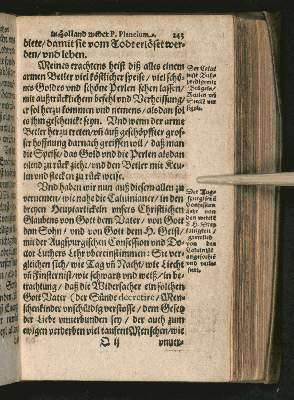 in Holland wider P. Plancium. 243
biete/ damit sie vom Todt erlöset wer-
den/ und leben.
Meines erachtens heist diß alles einem
armen Betler viel köstlicher speise/ viel schö-
nes Goldes und schöne Perlen sehen lassen/
mit außtrücklichem befehl und Verheissung/
er sol herzu kommen und nemens/ als dan sol
es ihm geschenckt seyn. Und wenn der arme
Betler herzu tretten/ uñ auß geschöpffter gros-
ser hoffnung darnach greiffen wil/ daß man
die Speise/ das Gold und die Perlen als dan
elend zu rück ziehe/ und den Betler mit Keu-
len und stecken zu rück weise.
Und haben wir nun auß diesem allen zu
vernemen/ wie nahe die Calvinianer/ in den
dreyen Hauptarticklen unsers Christlichen
Glaubens von Gott dem Vater/ von Gott
dem Sohn/ und von Gott dem H. Geist/
mit der Augspurgischen Confession und Do-
ctor Luthers Lehr übereinstimmen: Sie ver-
gleichen sich/ wie Tag uñ Nacht/ wie Liecht
uñ Finsterniß/ wie schwartz und weiß/ in be-
trachtung/ daß die Widersacher ein solchen
Gott Vater (der Sünde decretire/ Men-
schenkinder unschuldig verstosse/ dem Gesetz
der Liebe unverbunden sey/ der auch zum
ewigen verderben viel tausent Menschen/ wie
Q ij
Der Augs-
purgischen
Confession
Lehr von